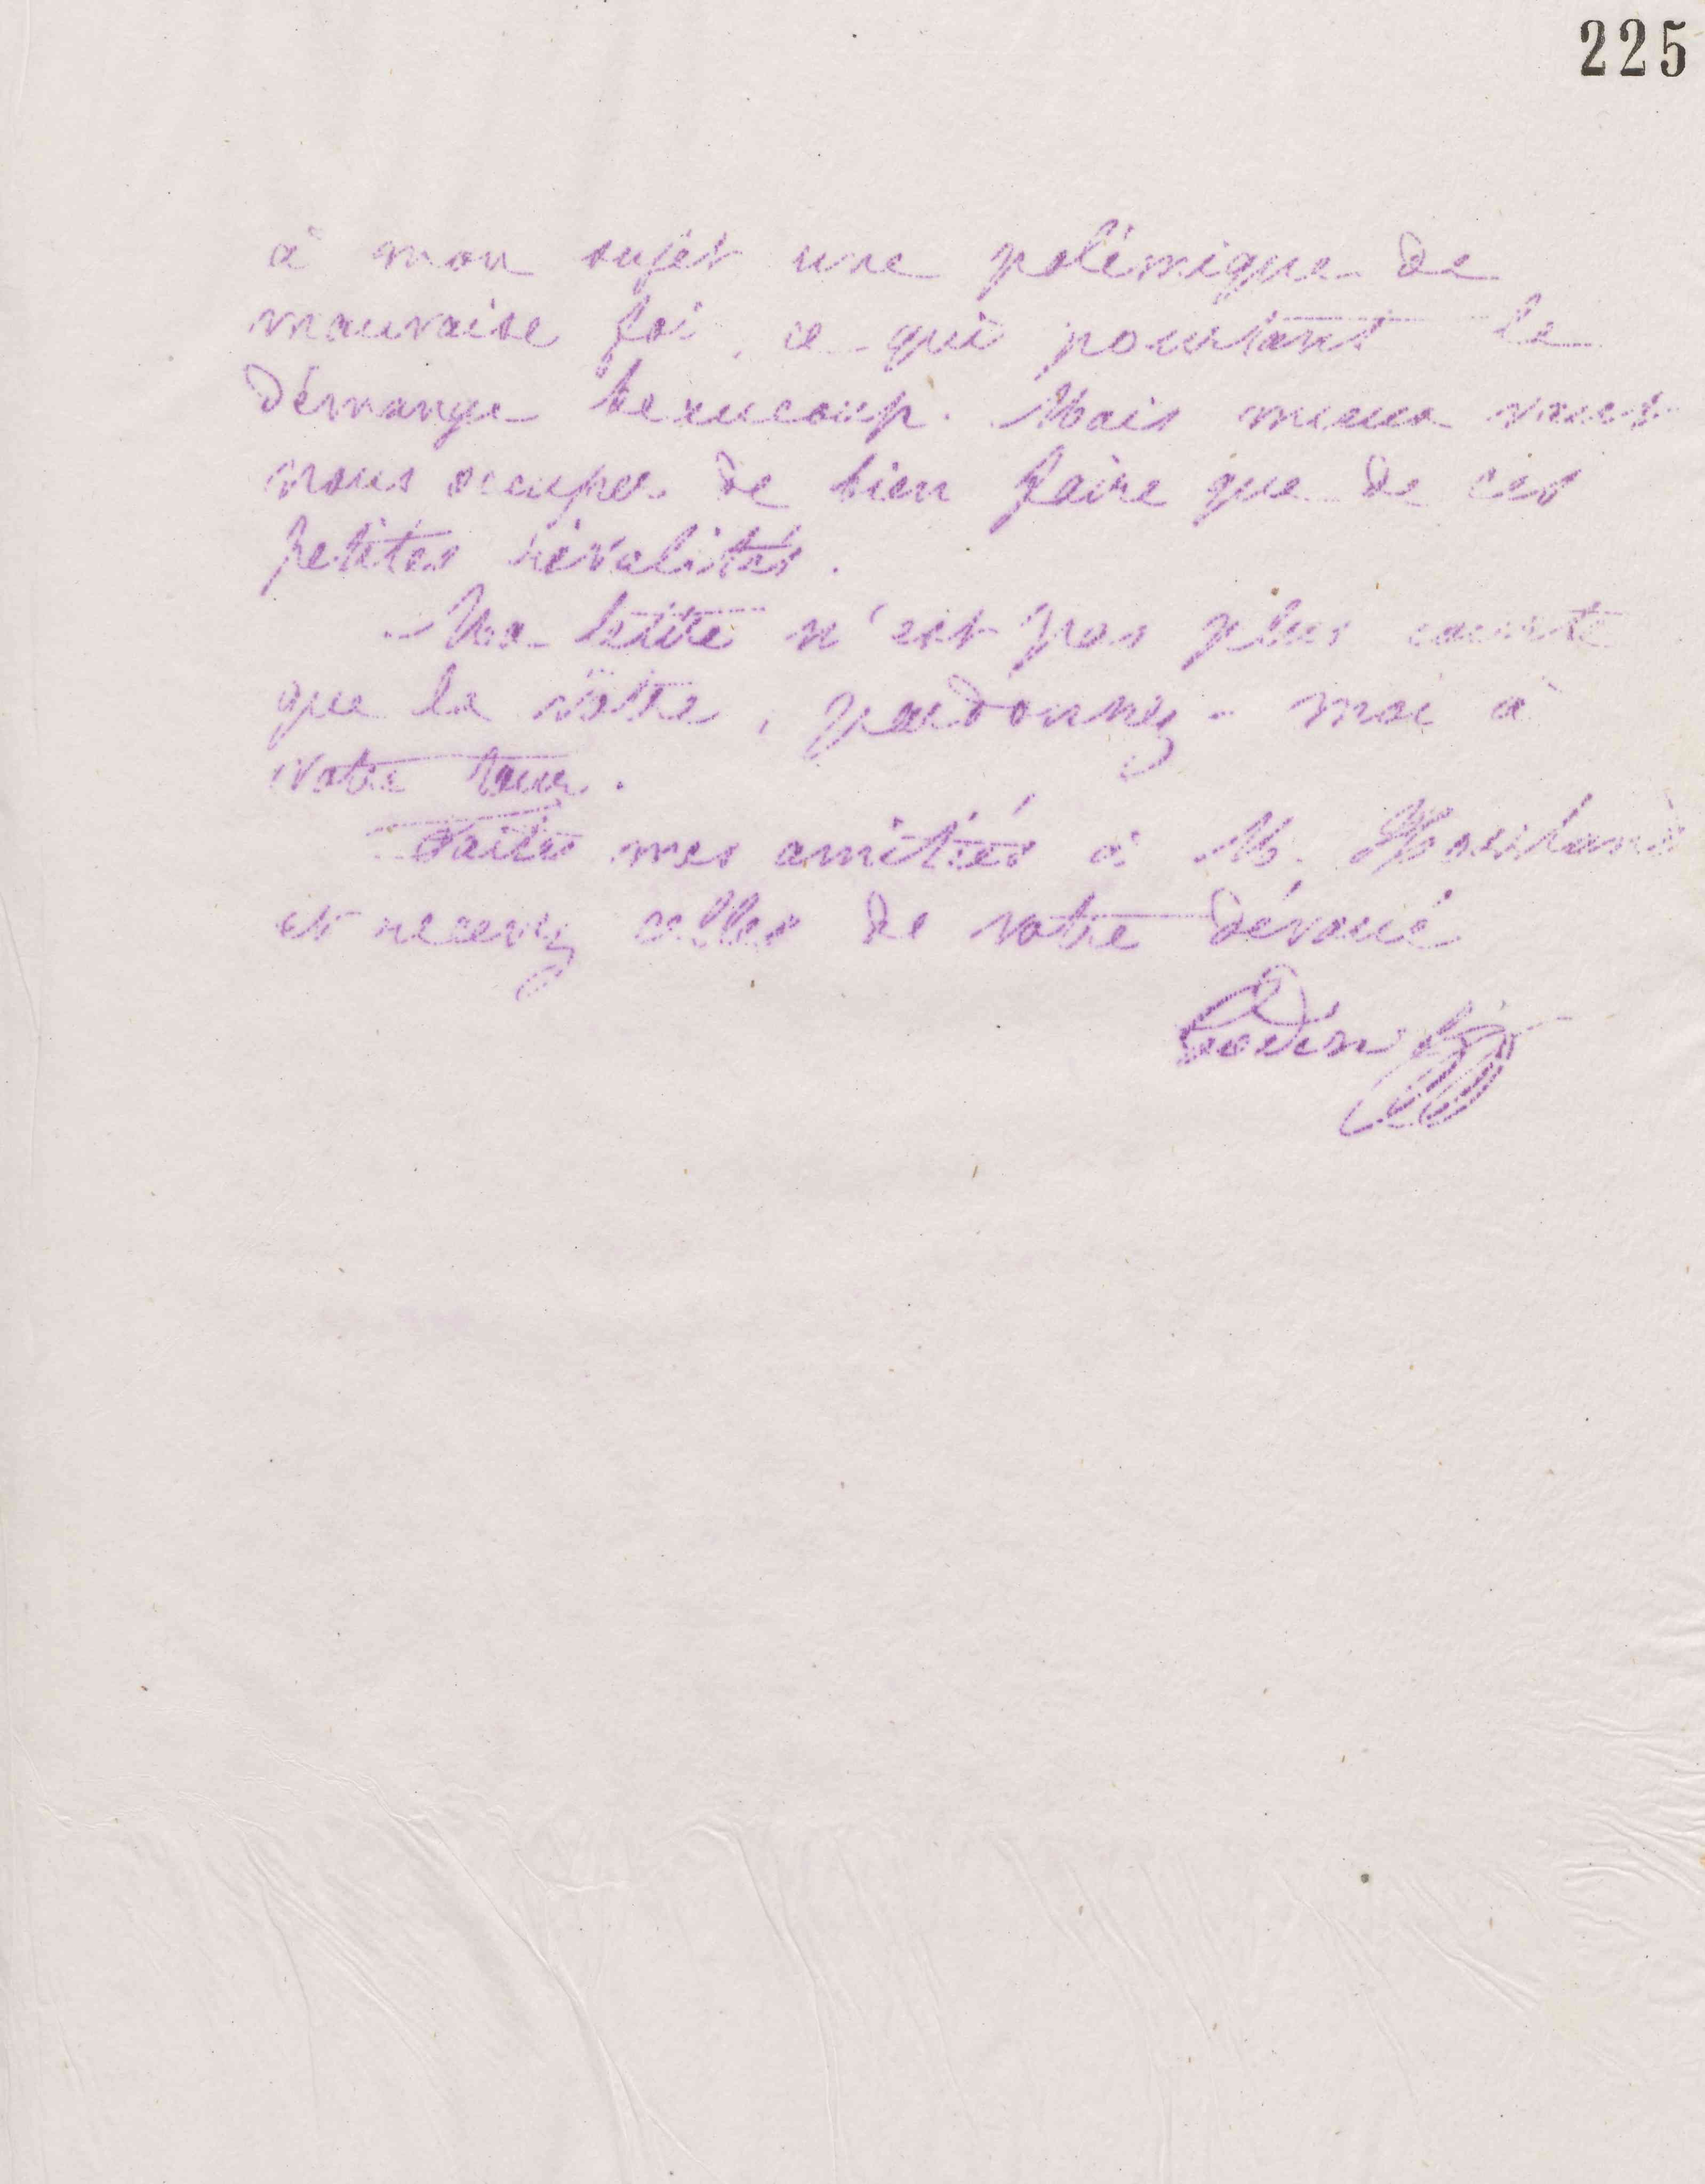 225
à mon sujet une polémique de
mauvaise foi, ce qui pourtant le
démange beaucoup. Mais mieux vaut
nous occuper de bien faire que de ces
petites rivalités.
Ma lettre n'est pas plus courte
que la vôtre, pardonnez-moi à
votre tour.
Faites mes amitiés à M.
et recevez celles de votre dévoué
Godin